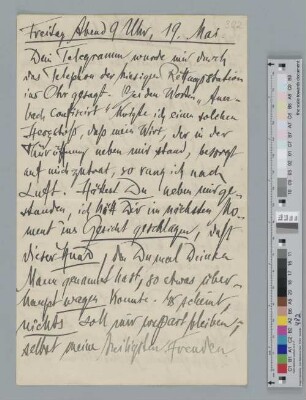 Freitag Abend 9 Uhr, 19. Mai.
Dein Telegramm wurde mir durch
das Telephon der hiesigen Rettungsstation
ins Ohr gesagt. Bei den Worten „Auer-
bach confiscirt" kriegte ich einen solchen
Herzschock, daß mein Wirt, der in der
Thüröffnung neben mir stand, besorgt
auf mich zutrat, so rang ich nach
Luft. Hättest Du neben mir ge-
standen, ich hätt Dir im nächsten Mo-
ment ins Gesicht geschlagen, daß
dieser Hund, den Du mal Deinen
Mann genannt hast, so etwas über-
haupt wagen konnte. Es scheint,
nichts soll mir erspart bleiben,
selbst meine heiligsten Freuden